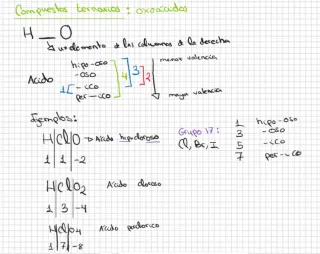 Compuestos ternarios: oxoácidos
H __ O
↳ un elemento de las columnas de la derecha
Ácido
hipo-oso
-oso
-ico
per-ico
1
4
3
2
menor valencia
mayor valencia
Ejemplos:
HClO → Ácido hipocloroso
1 | 1 | -2
HClO2 Ácido cloroso
1 | 3 | -4
HClO4 Ácido perclórico
1 | 7 | -8
Grupo 17:
Cl, Br, I
1 hipo-oso
3 -oso
5 -ico
7 per-ico